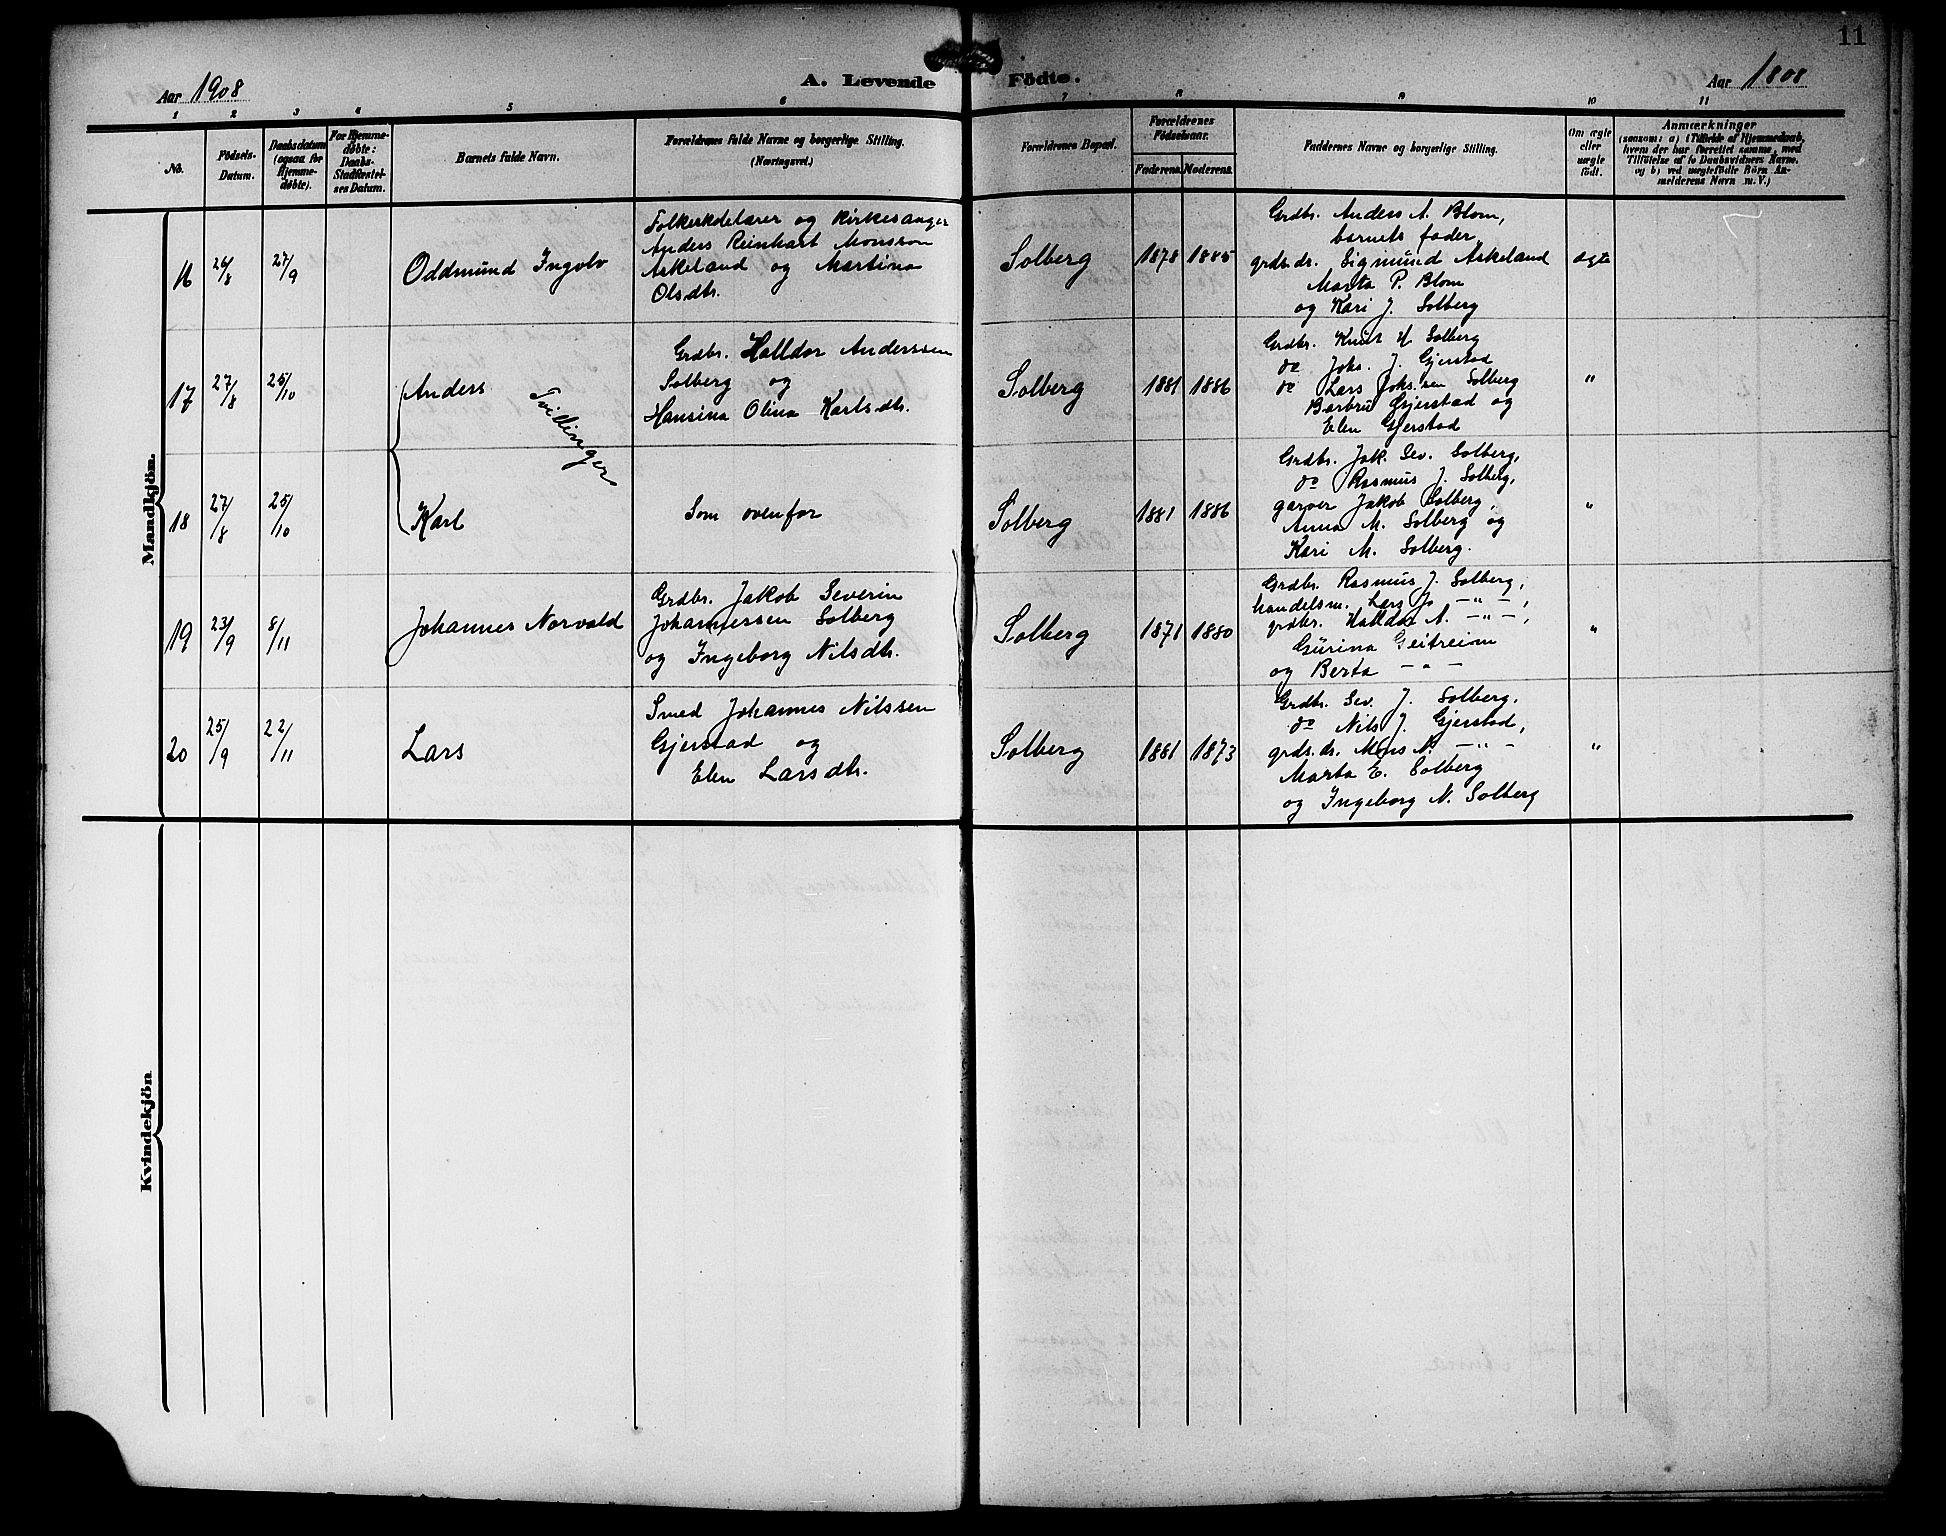 11
Aar 1908
A. Levende Födte.
Aar 1808
1 2 3 4 5 6 7 8 9 10 11
No.
Födsels-Datum.
Daabsdatum (ogsaa for Hjemmedøbte).
For Hjemmedøbte: Daabs-Stadfæstelses Datum.
Barnets fulde Navn.
Forældrenes fulde Navne og borgerlige Stilling. (Næringsvei.)
Forældrenes Bopæl.
Forældrenes Födselsaar.
Faderens. Moderens.
Faddernes Navne og borgerlige Stilling.
Om ægte eller uægte födt.
Anmærkninger
(saasom: a) Tilfælde af Hjemmedaab, hvem der har forrettet samme, med Tilföielse af to Daabsvidners Navne, og b) ved uægtefödte Börn Anmelderens Navn m. V.)
Mandkjön.
16 26/8 27/9 Oddmund Ingolv
Folkeskolelærer og kirkesanger
Anders Reinhart Monsson
Askeland og Martina
Olsdtr.
Solberg 1878 1885
Grdbr. Anders A. Blom,
barnets fader,
grds.dr. Sigmund Askeland
Marta P. Blom
og Kari J. Solberg
ægte
17 27/8 25/10 Anders
Tvillinger
Grdbr. Halldor Anderssen
Solberg og
Hansina Olina Karlsdtr.
Solberg 1881 1886
Grdbr. Knut H. Solberg
do Johs. J. Gjerstad
do Lars Johs.sen Solberg
Barbru Gjerstad og
Elen Gjerstad
"
18 27/8 25/10 Karl
Som ovenfor
Solberg 1881 1886
Grdbr. Jak. Sev. Solberg,
do Rasmus J. Solberg,
garver Jakob Solberg,
Anna M. Solberg og
Kari M. Solberg.
"
19 23/9 8/11 Johannes Norvald
Grdbr. Jakob Severin
Johannessen Solberg
og Ingeborg Nilsdtr.
Solberg 1871 1880
Grdbr. Rasmus J. Solberg,
handelsm. Lars J. — " —,
grdbr. Halldor A. — " —,
Gurina Geitreim
og Berta — " —
"
20 25/9 22/11 Lars
Smed Johannes Nilssen
Gjerstad og
Elen Larsdtr.
Solberg 1881 1873
Grdbr. Sev. J. Solberg,
do Nils J. Gjerstad,
grds.dr. Mons N. — " —
Marta E. Solberg
og Ingeborg N. Solberg
"
Kvindekjön